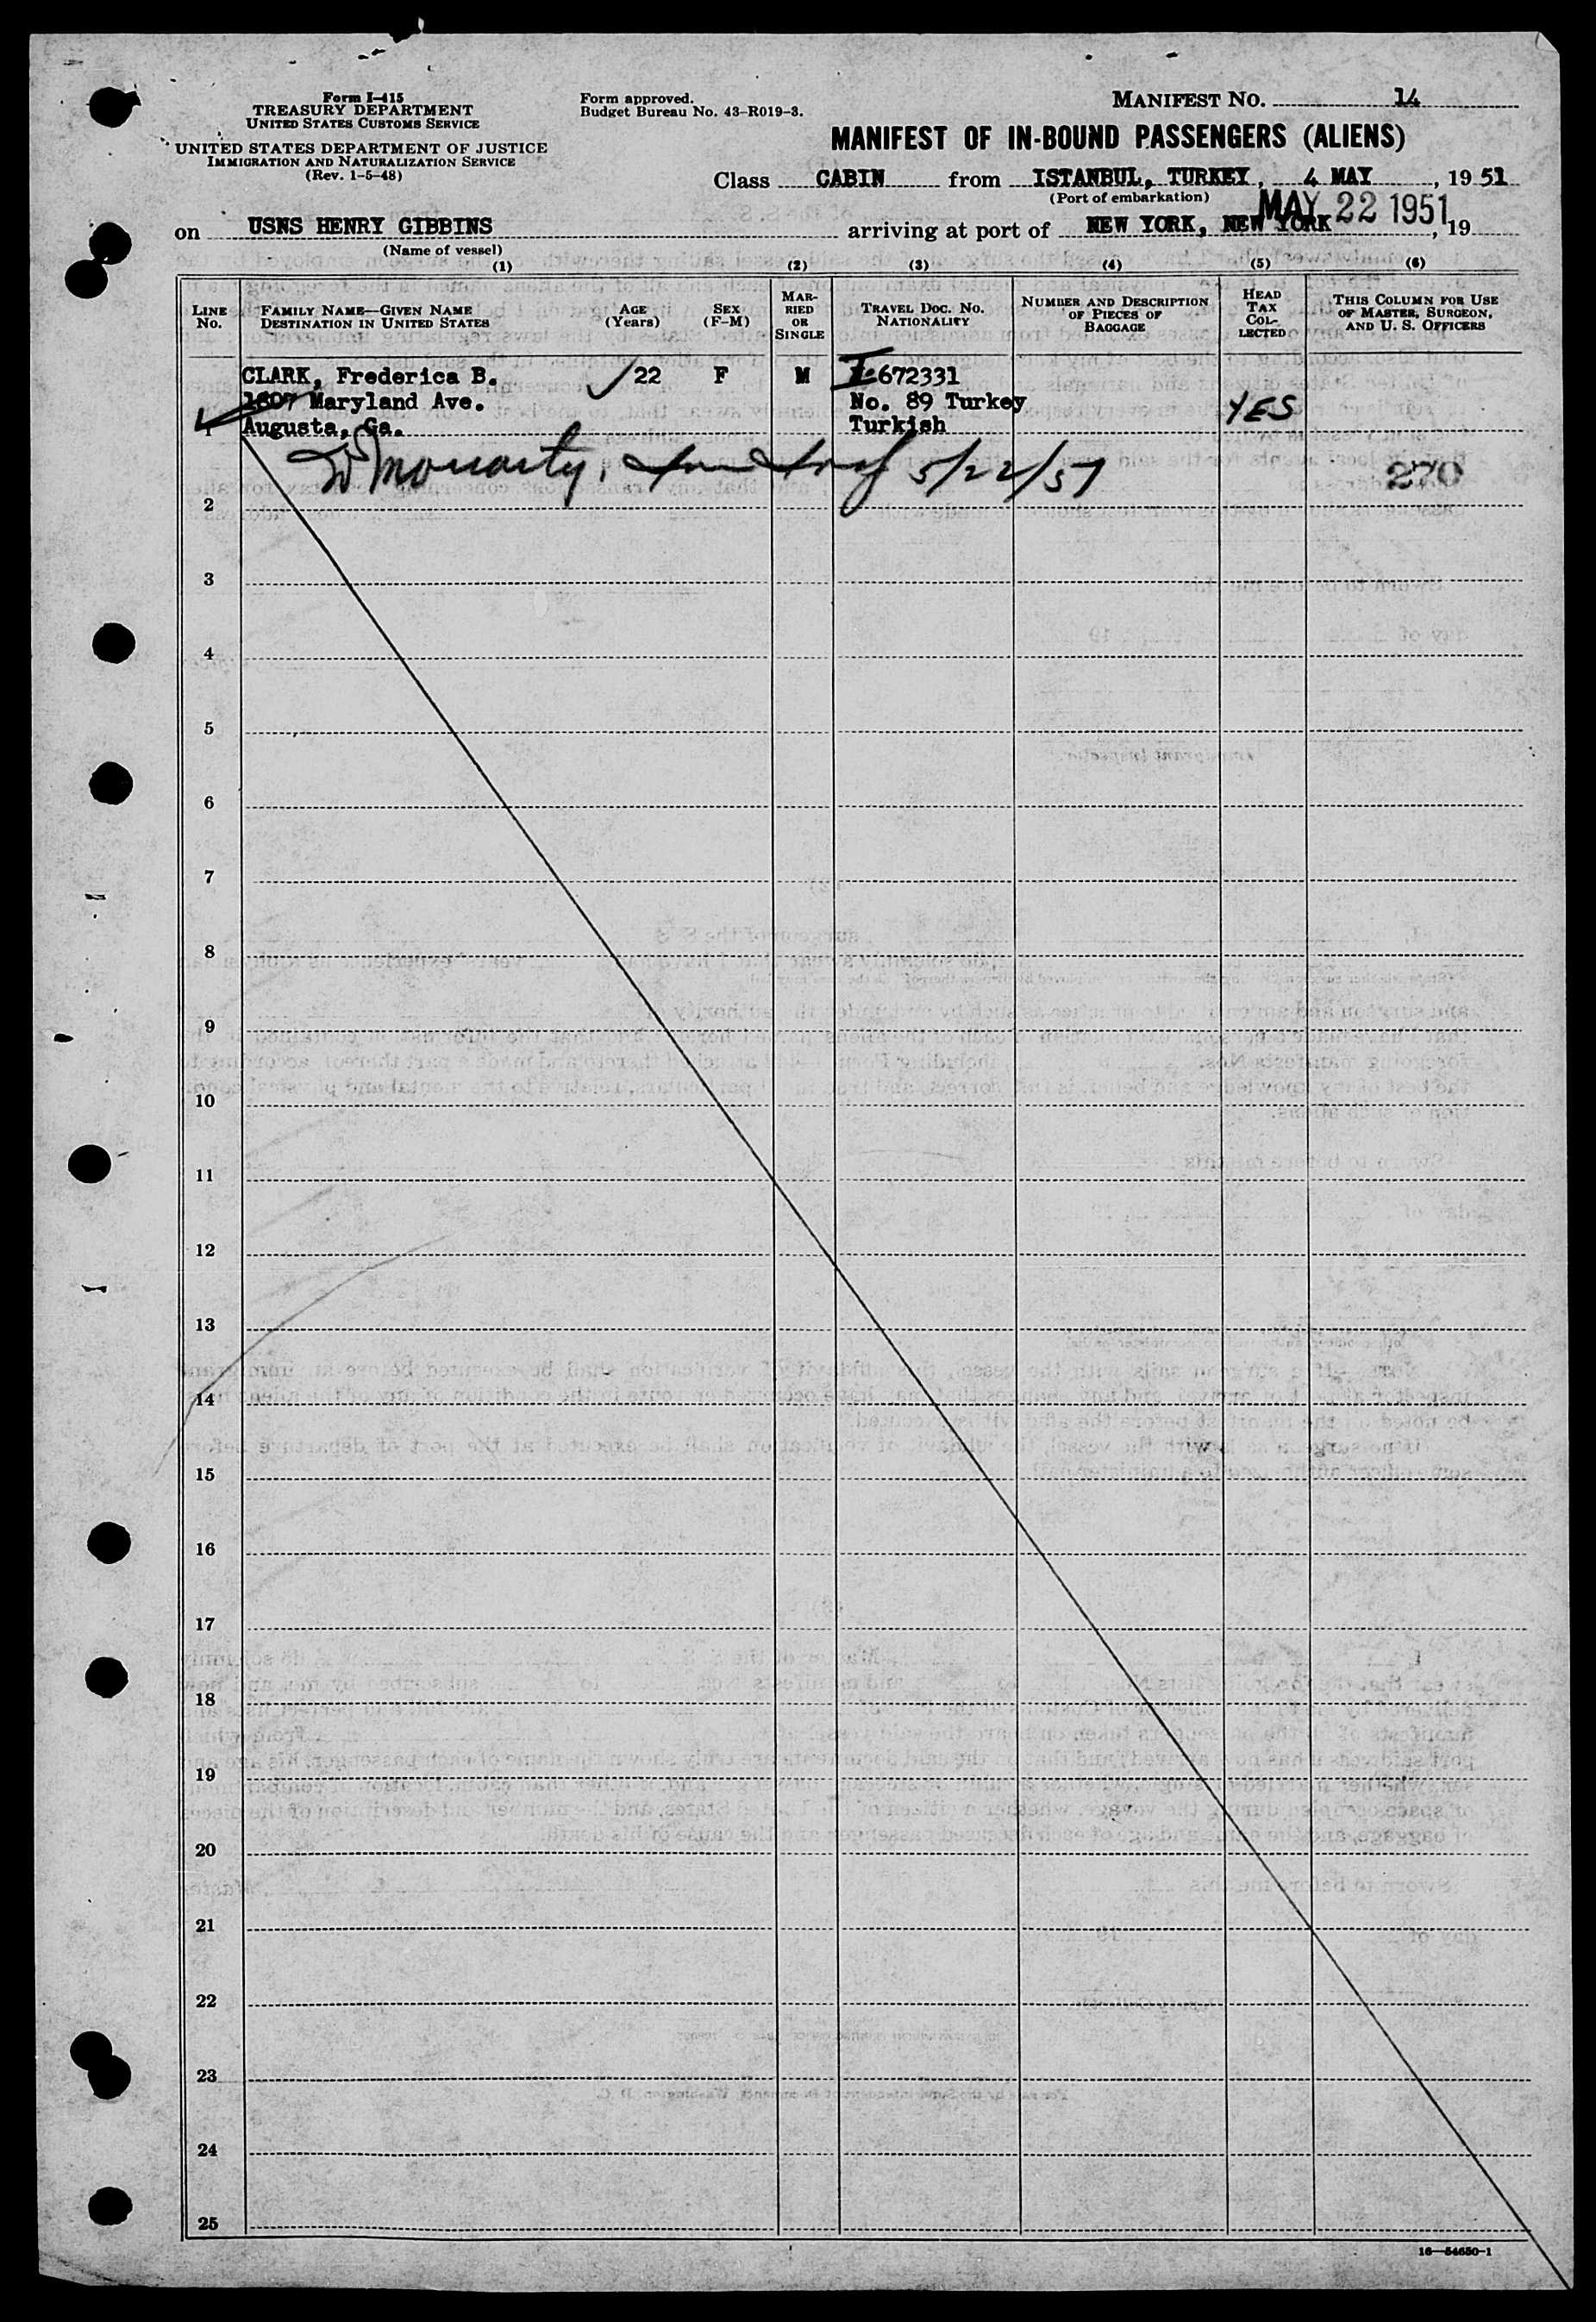 Form I-415
TREASURY DEPARTMENT
UNITED STATES CUSTOMS SERVICE
UNITED STATES DEPARTMENT OF JUSTICE
IMMIGRATION AND NATURALIZATION SERVICE
(Rev. 1-5-48)
Form approved.
Budget Bureau No. 43-R019-3.
MANIFEST NO. 14
MANIFEST OF IN-BOUND PASSENGERS (ALIENS)
Class CABIN from ISTANBUL, TURKEY, 4 MAY, 19 51
(Port of embarkation)
MAY 22 1951
on USNS HENRY GIBBINS arriving at port of NEW YORK, NEW YORK, 19
(Name of vessel)
(1) (2) (3) (4) (5) (6)
LINE No. FAMILY NAME—GIVEN NAME DESTINATION IN UNITED STATES AGE (Years) SEX (F-M) MARRIED OR SINGLE TRAVEL DOC. NO. NATIONALITY NUMBER AND DESCRIPTION OF PIECES OF BAGGAGE HEAD TAX COLLECTED THIS COLUMN FOR USE OF MASTER, SURGEON, AND U. S. OFFICERS
CLARK, Frederica B. 22 F M I-672331
1807 Maryland Ave. No. 89 Turkey YES
1 Augusta, Ga. Turkish
Moriarty, 5/22/51 270
2
3
4
5
6
7
8
9
10
11
12
13
14
15
16
17
18
19
20
21
22
23
24
25
16—54650-1